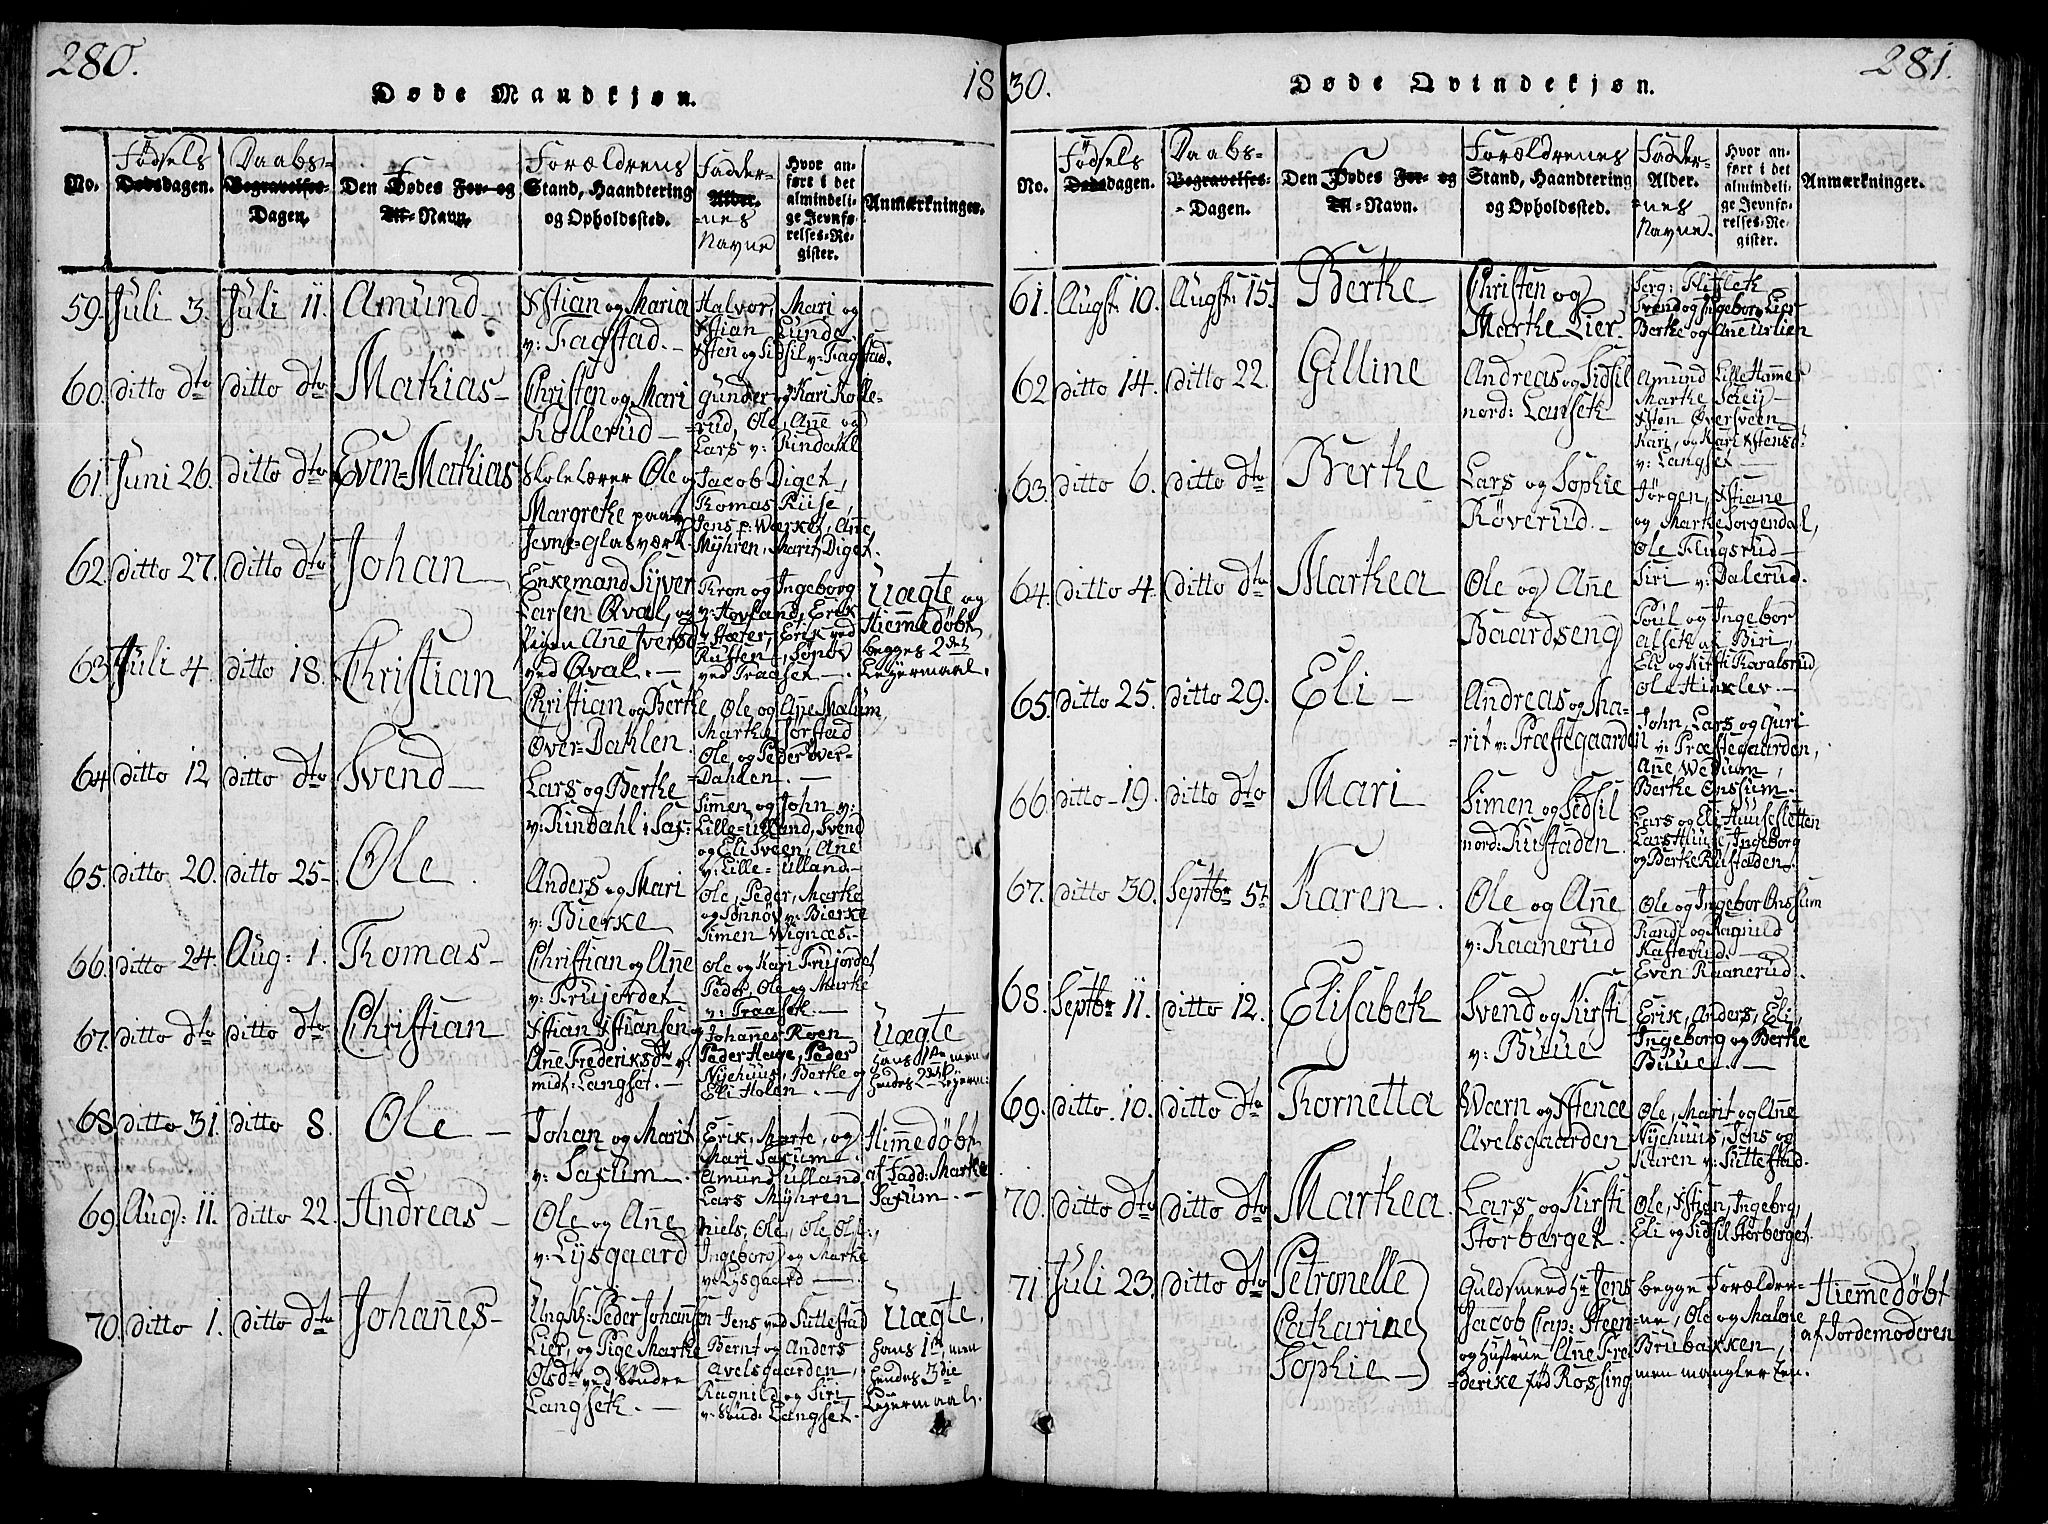 280.
Døde Mandkjøn.
18
No.
Fødsels
Dødsdagen.
Daabs-
Begravelses-
Dagen.
Den Dødes For- og
Til-Navn.
Forældrens
Stand, Haandtering
og Opholdssted.
Fadder-
Alder.
nes
Navne
Hvor an-
ført i det
almindeli-
ge Jevnfø-
relses-Re-
gister.
Anmærkninger.
59. Juli 3. Juli 11. Amund
Xstian og Maria
v: Fagstad.
Halvor, Mari og
Xstian Lunde
Xsten og Sidsil v: Fagstad.
60. ditto dto ditto dto Mathias
Christen og Mari
Rollerud
Gunder og Kari Rolle-
rud, Ole, Anne og
Lars v: Rindahl
61. Juni 26. ditto dto Even=Mathias
Skolelærer Ole og
Margrethe paa
Jevne=Glasværk.
Jacob Diget,
Thomas Riise,
Jens p: Værket, Anne
Myhren, Marit Diget.
62. ditto 27. ditto dto Johan
Enkemand Syver
Larsen Qval, og
Pigen Ane Iversd
ved Qval.
Tron og Ingeborg
v: Hovland, Erik
v: Sæter, Erik ved
Rusten, Sønøv
ved Traaset
Uægte og
Hiemmedøbt
begges 2det
Leyermaal.
63. Juli 4. ditto 18. Christian
Christian og Berthe
Over=Dahlen.
Ole og Ane Malum,
Marthe Sørstad
Ole og Peder Over-
Dahlen.
64. ditto 12 ditto dto Svend
Lars og Berthe
v: Rindahl i Sax:
Simen og John v:
Lille=Ulland, Svend
og Eli Sveen, Ane
v: Lille=Ulland.
65. ditto 20. ditto 25. Ole.
Anders og Mari
v: Bierke
Ole, Peder, Marthe
og Sønnøv v: Bierke
Simen Wignæs.
66. ditto 24. Aug: 1. Thomas
Christian og Ane
v: Prujordet
Ole og Kari Prujordet
Peder, Ole og Marthe
v: Traaset.
67. ditto dto ditto dto Christian
Xstian Xstiansen og
Ane Frederiksdtr v:
midt: Langset.
Johannes Roen
Peder Hage, Peder
Nyehuus, Berthe og
Eli Holen.
Uægte
hans 1ste men
hendes 2det Leyerm:
68 ditto 31. ditto 8. Ole
Johan og Marit
v: Saxum.
Erik, Marte, og
Mari Saxum
Amund Julland
Lars Myhren
Hiemmedøbt
af Fadd: Marthe
Saxum.
69. Aug: 11. ditto 22. Andreas
Ole og Ane
v: Lysgaard
Niels, Ole, Ole Ols:,
Ingeborg og Marthe
v: Lysgaard
70. ditto 1. ditto dto Johannes
Ungk: Peder Johannsen
Lier, og Pige Marthe
Olsdtr ved Søndre
Langseth.
Jens ved Suttestad
Bernt og Anders
Avelsgaarden,
Ragnild og Siri
v: Sønd: Langset.
Uægte,
hans 1ste, men
hendes 3die
Leyermaal.
30.
281.
Døde Qvindekjøn.
No.
Fødsels
Dødsdagen.
Daabs-
Begravelses-
Dagen.
Den Dødes For- og
Til-Navn.
Forældrenes
Stand, Haandtering
og Opholdssted.
Fadder-
Alder.
nes
Navne.
Hvor an-
ført i det
almindeli-
ge Jevnfø-
relses-Re-
gister.
Anmærkninger.
61. Augst. 10. Augst: 15. Berthe
Christen og
Marthe Lier.
Serg: Flitleth
Svend og Ingeborg Lier
Berthe og Ane Urlien
62 ditto 14. ditto 22. Gilline
Andreas og Sidsil
nord: Lanseth
Amund Lille Hammer
Marthe Scheij
Xsten Øversveen
Kari, og Kari Xstensdr
v: Langset
63. ditto 6. ditto dto Berthe
Lars og Sophie
Røverud.
Jørgen, Xstiane
og Marthe Sorgendal,
Ole Flugsrud
Siri v: Dalerud.
64. ditto 4. ditto dto Marthea
Ole og Ane
Baardseng
Poul og Ingebor
Alseth af Biri,
Eli og Kirsti Haralsrud,
Ole Hinklev
65. ditto 25. ditto 29. Eli
Andreas og Ma-
rit v: Præstegaarden
John, Lars og Guri
v: Præstegaarden,
Ane Wedum,
Berthe Enssum.
66. ditto 19. ditto dto Mari
Simen og Sidsil
nord: Rustaden
Lars og Eli Huusesletten
Lars Huuse, Ingeborg
og Berthe Rustaden.
67. ditto 30. Septbr 5te Karen.
Ole og Anne
v: Raanerud
Ole og Ingebor Onssum
Randi og Ragnild
Kasterud.
Even Raanerud.
68. Septbr 11. ditto 12. Elisabeth
Svend og Kirsti
v: Buue
Erik, Anders, Eli,
Ingeborg og Berthe
Buue.
69. ditto 10. ditto dto Thornetta
Wærn og Xstence
Avelsgaarden
Ole, Marit og Ane
Nyehuus, Jens og
Karen v: Suttestad.
70. ditto dto ditto dto Marthea.
Lars og Kirsti
Storberget.
Ole, Xstian, Ingeborg,
Eli og Sidsil Storberget.
71 Juli 23. ditto dto Petronelle
Catharine
Sophie
Guldsmeed Hr Jens
Jacob Cap: Steen
og Hustrue Ane Fre
derike fød Rossing
begge Forældre-
ne, Ole og Malene
Brubakken,
men mangler een.
Hiemmedøbt
af Jordemoderen